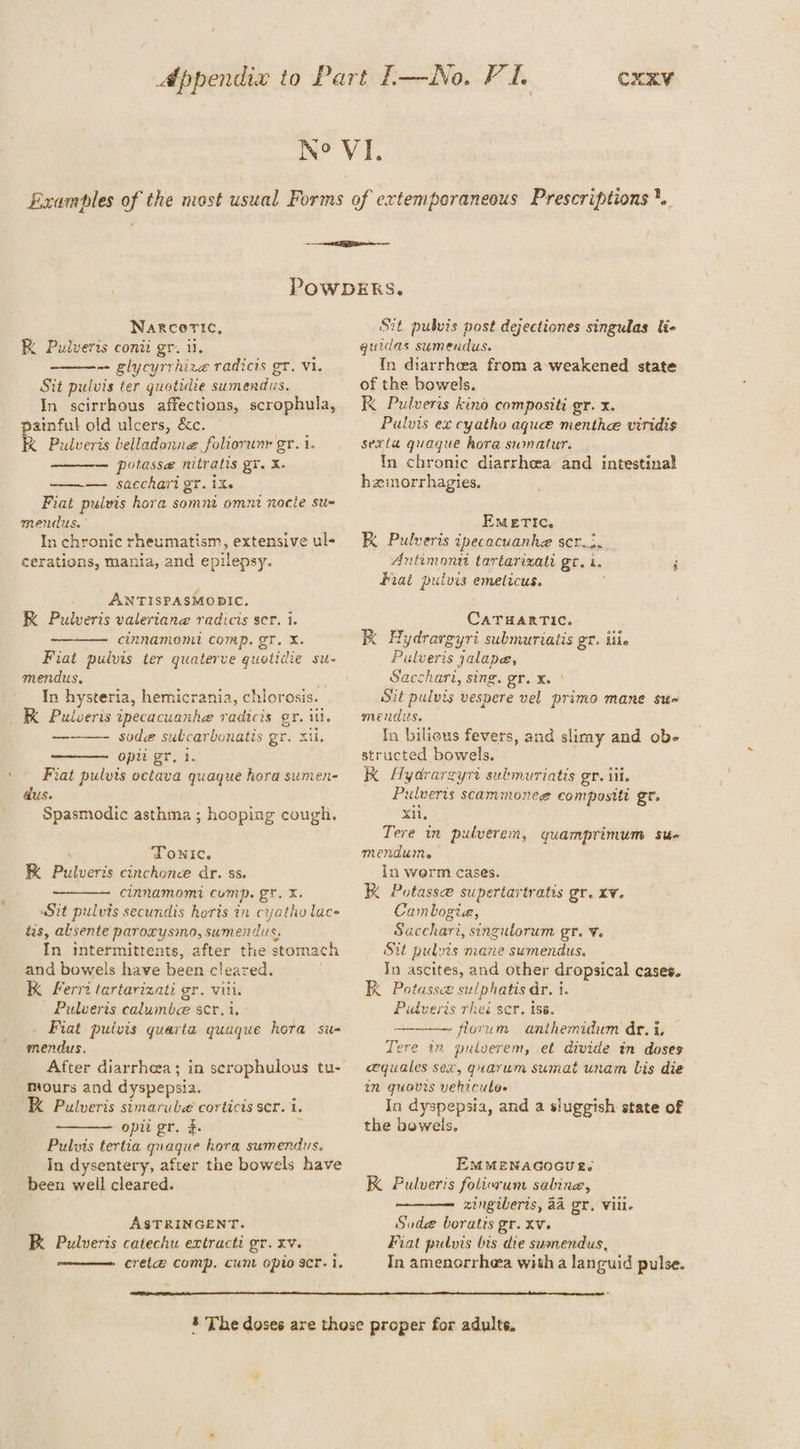 Appendix to Part I.—No. VI. cxxv
No VI.
Examples of the most usual Forms of extemporaneous Prescriptions ¹.
POWDERS.
NARCOTIC.
℞ Pulveris conii gr. ii.
——— glycyrrhizæ radicis gr. vi.
Sit pulvis ter quotidie sumendus.
In scirrhous affections, scrophula,
painful old ulcers, &c.
℞ Pulveris belladonnæ foliorum gr. i.
——— potassæ nitratis gr. x.
——— sacchari gr. ix.
Fiat pulvis hora somni omni nocte su-
mendus.
In chronic rheumatism, extensive ul-
cerations, mania, and epilepsy.
ANTISPASMODIC.
℞ Pulveris valerianæ radicis scr. i.
——— cinnamomi comp. gr. x.
Fiat pulvis ter quaterve quotidie su-
mendus.
In hysteria, hemicrania, chlorosis.
℞ Pulveris ipecacuanhæ radicis gr. iii.
——— sodæ subcarbonatis gr. xii.
——— opii gr. i.
Fiat pulvis octava quaque hora sumen-
dus.
Spasmodic asthma ; hooping cough.
TONIC.
℞ Pulveris cinchonæ dr. ss.
——— cinnamomi comp. gr. x.
Sit pulvis secundis horis in cyatho lac-
tis, absente paroxysmo, sumendus.
In intermittents, after the stomach
and bowels have been cleared.
℞ Ferri tartarizati gr. viii.
Pulveris calumbæ scr. i.
Fiat pulvis quarta quaque hora su-
mendus.
After diarrhœa ; in scrophulous tu-
mours and dyspepsia.
℞ Pulveris simarubæ corticis scr. i.
——— opii gr. ½.
Pulvis tertia quaque hora sumendus.
In dysentery, after the bowels have
been well cleared.
ASTRINGENT.
℞ Pulveris catechu extracti gr. xv.
——— cretæ comp. cum opio scr. i.
Sit pulvis post dejectiones singulas li-
quidas sumendus.
In diarrhœa from a weakened state
of the bowels.
℞ Pulveris kino compositi gr. x.
Pulvis ex cyatho aquæ menthæ viridis
sexta quaque hora sumatur.
In chronic diarrhœa and intestinal
hæmorrhagies.
EMETIC.
℞ Pulveris ipecacuanhæ scr. i.
Antimonii tartarizati gr. i.
Fiat pulvis emeticus.
CATHARTIC.
℞ Hydrargyri submuriatis gr. iii.
Pulveris jalapæ,
Sacchari, sing. gr. x.
Sit pulvis vespere vel primo mane su-
mendus.
In bilious fevers, and slimy and ob-
structed bowels.
℞ Hydrargyri submuriatis gr. iii.
Pulveris scammoneæ compositi gr.
xii.
Tere in pulverem, quamprimum su-
mendum.
In worm cases.
℞ Potassæ supertartratis gr. xv.
Cambogiæ,
Sacchari, singulorum gr. v.
Sit pulvis mane sumendus.
In ascites, and other dropsical cases.
℞ Potassæ sulphatis dr. i.
Pulveris rhei scr. iss.
——— florum anthemidum dr. i.
Tere in pulverem, et divide in doses
æquales sex, quarum sumat unam bis die
in quovis vehiculo.
In dyspepsia, and a sluggish state of
the bowels.
EMMENAGOGUE.
℞ Pulveris foliorum sabinæ,
——— zingiberis, āā gr. viii.
Sodæ boratis gr. xv.
Fiat pulvis bis die sumendus.
In amenorrhœa with a languid pulse.
¹ The doses are those proper for adults.